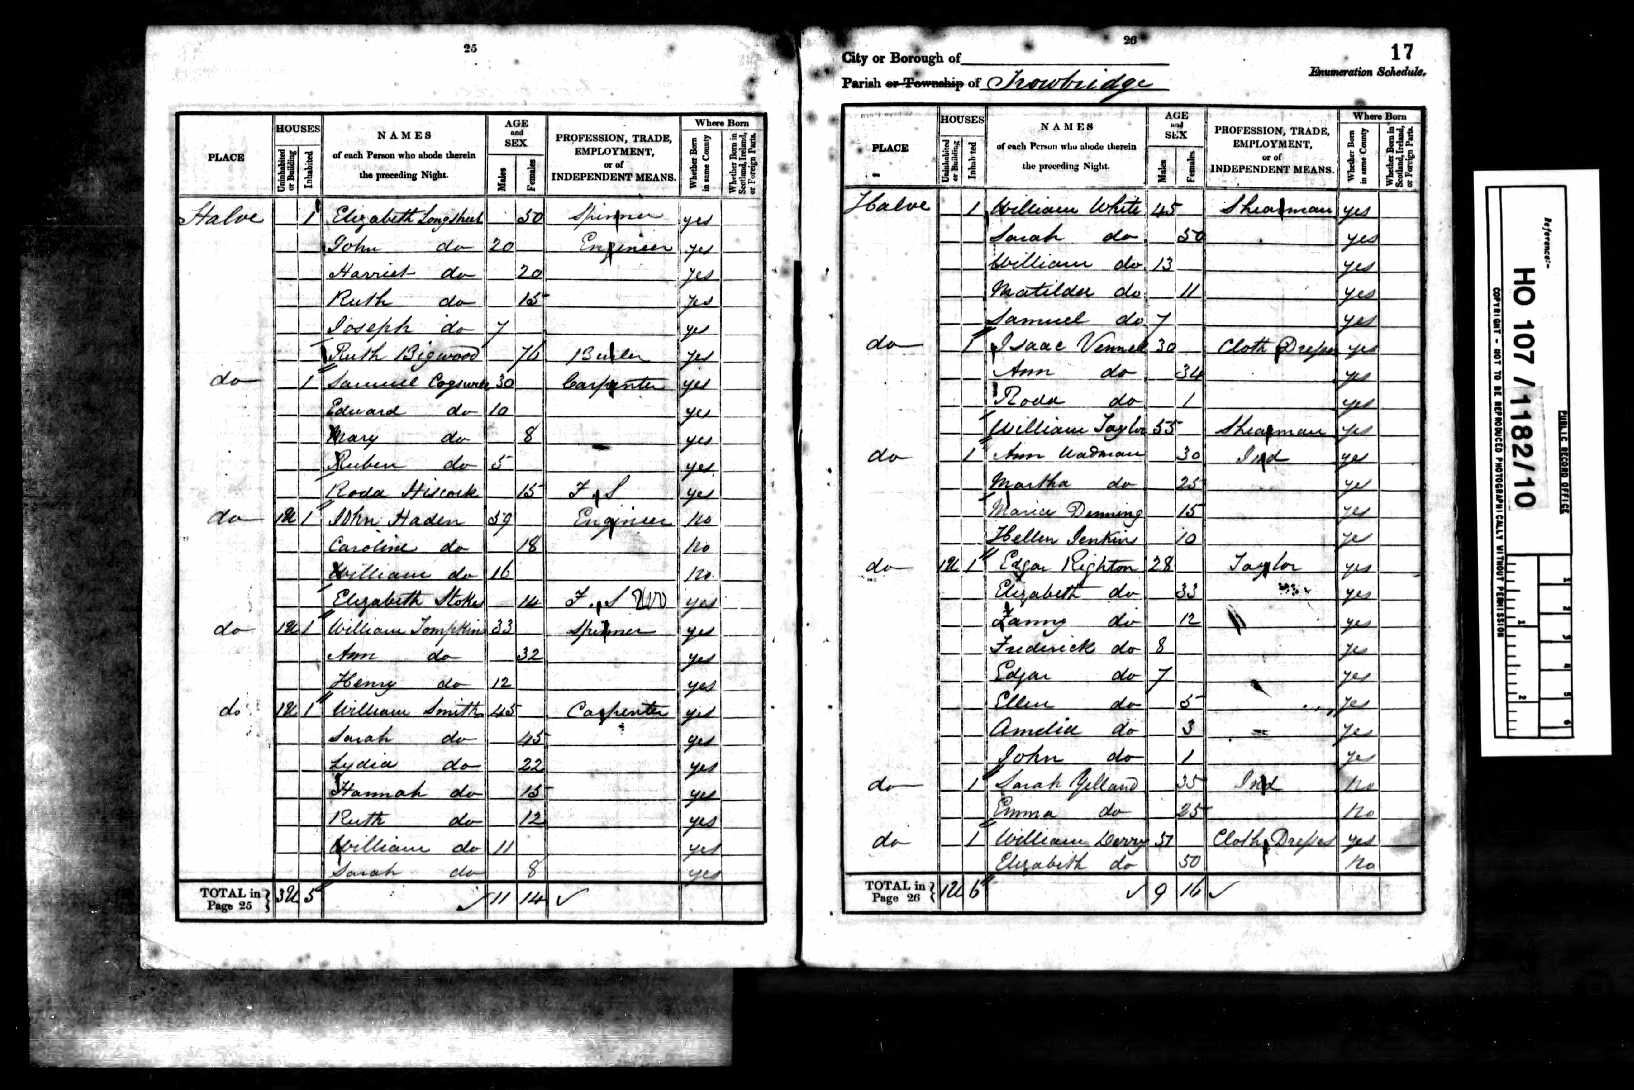 25
PLACE
HOUSES
Uninhabited or Building
Inhabited
NAMES
of each Person who abode therein
the preceding Night.
AGE
and
SEX
Males
Females
PROFESSION, TRADE,
EMPLOYMENT,
or of
INDEPENDENT MEANS.
Where Born
Whether Born in same County
Whether Born in Scotland, Ireland, or Foreign Parts.
Halve 1 Elizabeth 50 Spinner yes
John do 20 Engineer yes
Harriet do 20 yes
Ruth do 15 yes
Joseph do 7 yes
Ruth Bigwood 76 yes
do 1 Samuel 30 Carpenter yes
Edward do 10 yes
Mary do 8 yes
Ruben do 5 yes
Roda Hiscock 15 F. S yes
do 1U 1 John Haden 59 Engineer no
Caroline do 18 no
William do 16 no
Elizabeth Stokes 14 F. S yes
do 1U 1 William Tompkins 33 Spinner yes
Ann do 32 yes
Henry do 12 yes
do 1U 1 William Smith 45 Carpenter yes
Sarah do 45 yes
Lydia do 22 yes
Hannah do 15 yes
Ruth do 12 yes
William do 11 yes
Sarah do 8 yes
TOTAL in Page 25 } 3U 5 ✓ 11 14 ✓
26
17
City or Borough of
Enumeration Schedule.
Parish or Township of Trowbridge
PLACE
HOUSES
Uninhabited or Building
Inhabited
NAMES
of each Person who abode therein
the preceding Night.
AGE
and
SEX
Males
Females
PROFESSION, TRADE,
EMPLOYMENT,
or of
INDEPENDENT MEANS.
Where Born
Whether Born in same County
Whether Born in Scotland, Ireland, or Foreign Parts.
Halve 1 William White 45 Shearman yes
Sarah do 50 yes
William do 13 yes
Matilda do 11 yes
Samuel do 7 yes
do 1 Isaac Vennell 30 Cloth Dresser yes
Ann do 34 yes
Roda do 1 yes
William Taylor 55 Shearman yes
do 1 Ann Wadman 30 Ind yes
Martha do 25 yes
Denning 15 yes
Hellen Jenkins 10 yes
do 1U 1 Edgar Righton 28 Taylor yes
Elizabeth do 33 yes
Fanny do 12 yes
Frederick do 8 yes
Edgar do 7 yes
Ellen do 5 yes
Amelia do 3 yes
John do 1 yes
do 1 Sarah Yelland 35 Ind no
Emma do 25 no
do 1 William Derry 51 Cloth Dresser yes
Elizabeth do 50 no
TOTAL in Page 26 } 1U 6 ✓ 9 16 ✓
Reference:-
HO 107 / 1182/10
PUBLIC RECORD OFFICE
COPYRIGHT - NOT TO BE REPRODUCED PHOTOGRAPHICALLY WITHOUT PERMISSION
1
2
1
2
3
4
5
6